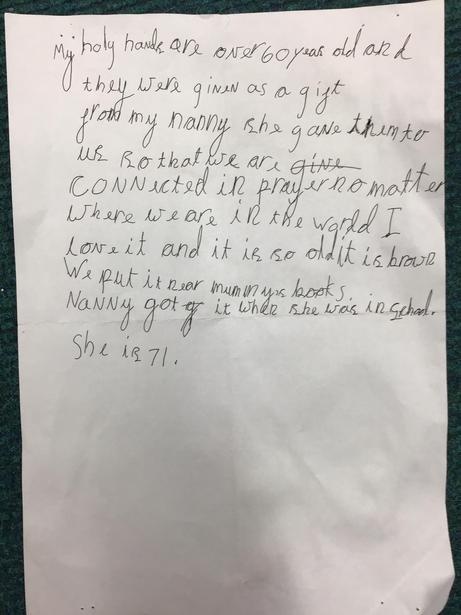 My holy hands are over 60 years old and
they were given as a gift
from my nanny she gave them to
us so that we are give
CONNected in prayer no matter
where we are in the world I
love it and it is so old it is brown
We put it near mummys books.
NaNNY got it when she was in school.
She is 71.